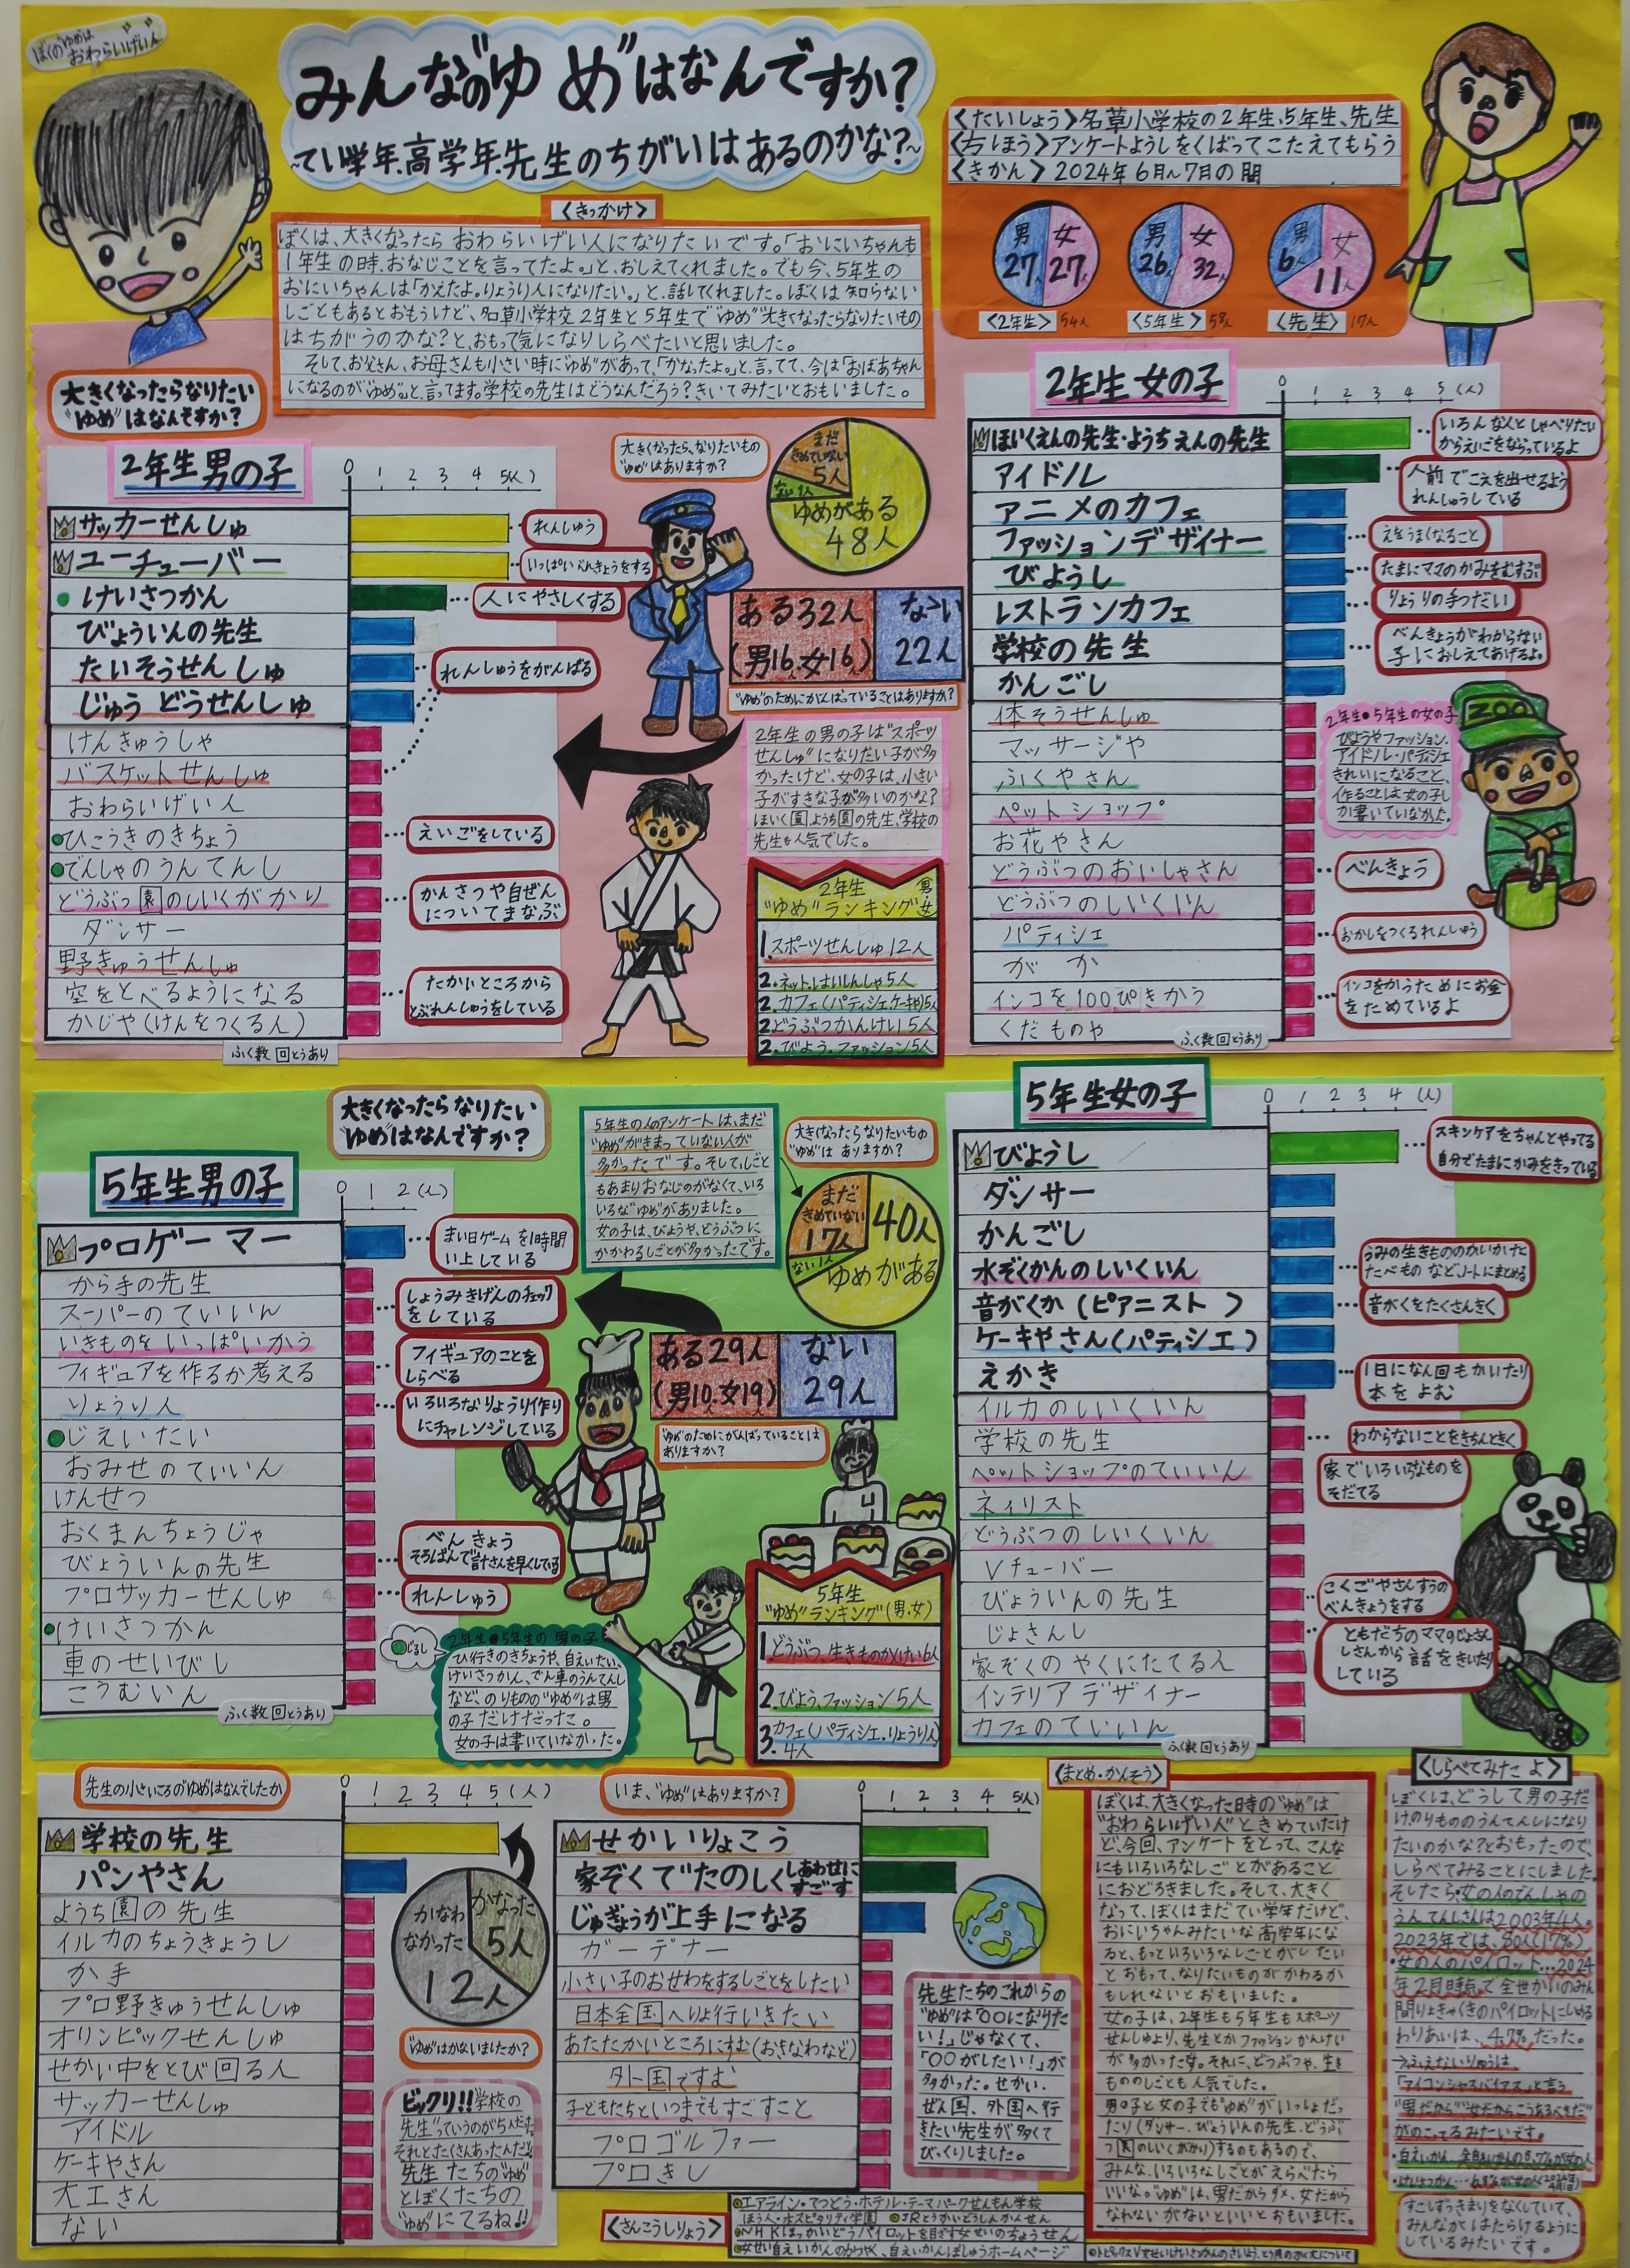 ぼくのゆめは
おわらいげい人
みんなの"ゆめ"はなんですか?
~てい学年.高学年.先生のちがいはあるのかな?~
<たいしょう>名草小学校の2年生、5年生、先生
<方ほう>アンケートようしをくばってこたえてもらう
<きかん>2024年6月~7月の間
男
27人
女
27人
<2年生>54人
男
26人
女
32人
<5年生>58人
男
6人
女
11人
<先生>17人
<きっかけ>
ぼくは、大きくなったらおわらいげい人になりたいです。「おにいちゃんも
1年生の時、おなじことを言ってたよ。」と、おしえてくれました。でも今、5年生の
おにいちゃんは「かえたよ。りょうり人になりたい。」と、話してくれました。ぼくは知らない
しごともあるとおもうけど、名草小学校2年生と5年生で"ゆめ"大きくなったらなりたいもの
はちがうのかな?と、おもって気になりしらべたいと思いました。
そして、お父さん、お母さんも小さい時に"ゆめ"があって、「かなったよ。」と、言ってて、今は「おばあちゃん
になるのが"ゆめ"。」と、言ってます。学校の先生はどうなんだろう?きいてみたいとおもいました。
大きくなったらなりたい
"ゆめ"はなんですか?
2年生男の子
0 1 2 3 4 5(人)
サッカーせんしゅ
れんしゅう
ユーチューバー
いっぱいべんきょうをする
けいさつかん
人にやさしくする
びょういんの先生
たいそうせんしゅ
れんしゅうをがんばる
じゅうどうせんしゅ
けんきゅうしゃ
バスケットせんしゅ
おわらいげい人
ひこうきのきちょう
えいごをしている
でんしゃのうんてんし
どうぶつ園のしいくがかり
かんさつや自ぜん
についてまなぶ
ダンサー
野きゅうせんしゅ
空をとべるようになる
たかいところから
とぶれんしゅうをしている
かじや(けんをつくる人)
ふく数回とうあり
大きくなったら、なりたいもの
"ゆめ"はありますか?
まだ
きめていない
5人
ない1人
ゆめがある
48人
ある32人
(男16人.女16人)
ない
22人
"ゆめ"のためにがんばっていることはありますか?
2年生の男の子は"スポーツ
せんしゅ"になりたい子が多
かったけど、女の子は、小さい
子がすきな子が多いのかな?
ほいく園、ようち園の先生、学校の
先生も人気でした。
2年生
"ゆめ"ランキング 男・女
1.スポーツせんしゅ12人
2.ネットはいしんしゃ5人
2.カフェ(パティシェ.ケーキや)5人
2.どうぶつかんけい5人
2.びよう.ファッション5人
2年生 女の子
0 1 2 3 4 5(人)
ほいくえんの先生・ようちえんの先生
いろんな人としゃべりたい
からえいごをならっているよ
アイドル
人前でこえを出せるよう
れんしゅうしている
アニメのカフェ
ファッションデザイナー
えをうまくなること
びようし
たまにママのかみをむすぶ
レストランカフェ
りょうりの手つだい
学校の先生
べんきょうがわからない
子におしえてあげるよ。
かんごし
体そうせんしゅ
マッサージや
ふくやさん
ペットショップ
お花やさん
どうぶつのおいしゃさん
べんきょう
どうぶつのしいくいん
パティシェ
おかしをつくるれんしゅう
がか
インコを100ぴきかう
インコをかうためにお金
をためているよ
くだものや
ふく数回とうあり
2年生・5年生の女の子
びようやファッション・
アイドル・パティシェ
きれいになること、
作ることは女の子し
か書いていなかった。
ZOO
大きくなったらなりたい
"ゆめ"はなんですか?
5年生男の子
0 1 2(人)
プロゲーマー
まい日ゲームを1時間
い上している
から手の先生
スーパーのていいん
しょうみきげんのチェック
をしている
いきものをいっぱいかう
フィギュアを作るか考える
フィギュアのことを
しらべる
りょうり人
いろいろなりょうり作り
にチャレンジしている
じえいたい
おみせのていいん
けんせつ
おくまんちょうじゃ
びょういんの先生
べんきょう
そろばんで計さんを早くしている
プロサッカーせんしゅ
れんしゅう
けいさつかん
車のせいびし
こうむいん
ふく数回とうあり
じるし
2年生・5年生の男の子
ひ行きのきちょうや、自えいたい、
けいさつかん、でん車のうんてんし
など、のりものの"ゆめ"は男
の子だけだった。
女の子は書いていなかった。
5年生の人のアンケートは、まだ
"ゆめ"がきまっていない人が
多かったです。そして、しごと
もあまりおなじのがなくて、いろ
いろな"ゆめ"がありました。
女の子は、びようや、どうぶつに
かかわるしごとが多かったです。
大きくなったらなりたいもの
"ゆめ"はありますか?
まだ
きめていない
17人
ない1人
40人
ゆめがある
ある29人
(男10人.女19人)
ない
29人
"ゆめ"のためにがんばっていることは
ありますか?
5年生
"ゆめ"ランキング(男.女)
1.どうぶつ、生きものかんけい6人
2.びよう、ファッション5人
3.カフェ(パティシェ.りょうりん)
4人
5年生女の子
0 1 2 3 4 (人)
びようし
スキンケアをちゃんとやってる
自分でたまにかみをきっている
ダンサー
かんごし
水ぞくかんのしいくいん
うみの生きもののかいかたと
たべものなどノートにまとめる
音がくか(ピアニスト)
音がくをたくさんきく
ケーキやさん(パティシェ)
えかき
1日になん回もかいたり
本をよむ
イルカのしいくいん
学校の先生
わからないことをきちんときく
ペットショップのていいん
家でいろいろなものを
そだてる
ネイリスト
どうぶつのしいくいん
Vチューバー
びょういんの先生
こくごやさんすうの
べんきょうをする
じょさんし
ともだちのママのじょさん
しさんから話をきいたり
している
家ぞくのやくにたてる人
インテリアデザイナー
カフェのていいん
ふく数回とうあり
先生の小さいころの"ゆめ"はなんでしたか
0 1 2 3 4 5(人)
学校の先生
パンやさん
ようち園の先生
イルカのちょうきょうし
か手
プロ野きゅうせんしゅ
オリンピックせんしゅ
せかい中をとび回る人
サッカーせんしゅ
アイドル
ケーキやさん
大工さん
ない
かなわ
なかった
12人
かなった
5人
"ゆめ"はかないましたか?
ビックリ!!学校の
先生"っていうのが5人だった
それと、たくさんあったんだ!!
先生たちの"ゆめ"
とぼくたちの
"ゆめ"にてるね!!
いま、"ゆめ"はありますか?
0 1 2 3 4 5(人)
せかいりょこう
家ぞくでたのしくしあわせに
すごす
じゅぎょうが上手になる
ガーデナー
小さい子のおせわをするしごとをしたい
日本全国へりょ行いきたい
あたたかいところにすむ(おきなわなど)
外国ですむ
子どもたちといつまでもすごすこと
プロゴルファー
プロきし
先生たちのこれからの
"ゆめ"は「〇〇になりた
い!」じゃなくて、
「〇〇がしたい!」が
多かった。せかい.
ぜん国、外国へ行
きたい先生が多くて
びっくりしました。
<さんこうしりょう>
エアライン・てつどう・ホテル・テーマパークせんもん学校
ほう人・ホスピタリティ学園 JRとうかいどうしんかんせん
NHKほっかいどうパイロットを目ざす女せいのちょうせん
女せい自えいかんのかつやく、自えいかんぼしゅうホームページ
<まとめ・かんそう>
ぼくは、大きくなった日時の"ゆめ"は
"おわらいげい人"ときめていたけ
ど、今回、アンケートをとって、こんな
にもいろいろなしごとがあること
におどろきました。そして、大きく
なって、ぼくはまだてい学年だけど、
おにいちゃんみたいな高学年にな
ると、もっといろいろなしごとがしたい
とおもって、なりたいものがかわるか
もしれないとおもいました。
女の子は、2年生も5年生もスポーツ
せんしゅより、先生とかファッションかんけい
が多かったです。それに、どうぶつや、生き
もののしごとも人気でした。
男の子と女の子でも"ゆめ"がいっしょだっ
たり(ダンサー、びょういんの先生、どうぶ
つ園のしいくがかり)するのもあるので、
みんな、いろいろなしごとがえらべたら
いいな。"ゆめ"は、男だからダメ、女だから
なれないがないといいとおもいました。
<しらべてみたよ>
ぼくは、どうして男の子だ
けのりもののうんてんしになり
たいのかな?とおもったので、
しらべてみることにしました。
そしたら、女の人のでんしゃの
うんてんしさんは2003年4人。
2023年では、80人(17%)
・女の人のパイロット…2024
年2月時点で全世かいのみん
間りょきゃくきのパイロットにしめる
わりあいは、4.7%だった。
→ふえないりゆうは
「アイコンシャスバイアス」と言う
"男だから""女だからこうあるべきだ"
がのこってるみたいです。
すこしずつきまりをなくしていて、
みんながはたらけるように
しているみたいです。